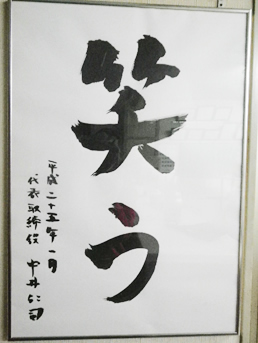 笑う
平成二十五年一月
代表取締役 中井仁司